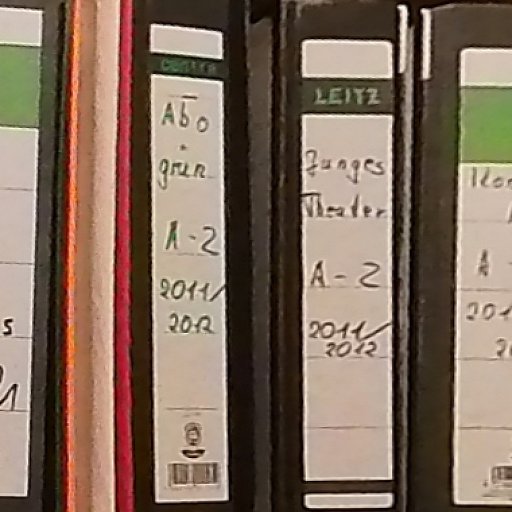 Abo
grün
A-Z
2011/
2012
LEITZ
Junges
Theater
A-Z
2011/
2012
A
201
s